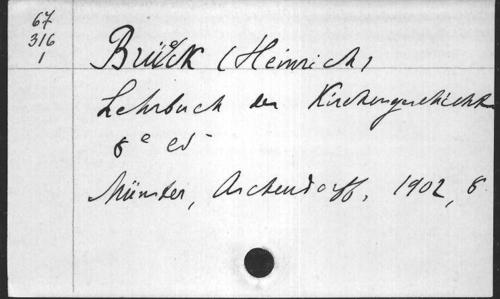 67
316
1
Brück (Heinrich)
Lehrbuch der Kirchengeschichte
8e ed
Münster, Aschendorff, 1902, 8